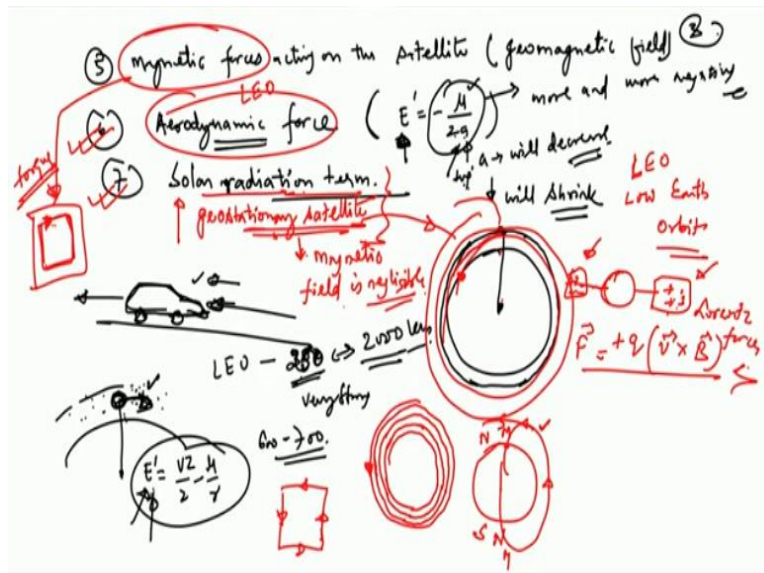 ⑤ Magnetic forces acting on the satellite (geomagnetic field) B.
LEO
⑥ Aerodynamic force ( E' = - μ/2a ) → more and more negative
a → will decrease
will shrink
torque
⑦ Solar radiation term.
geostationary satellite
↓ magnetic
field is negligible
LEO
Low Earth
Orbits
++
Lorentz
force
F = +q (v × B)
LEO - 250 ↔ 2000 km
very strong
600 - 700.
E' = v2/2 - μ/r
N M
S N
M